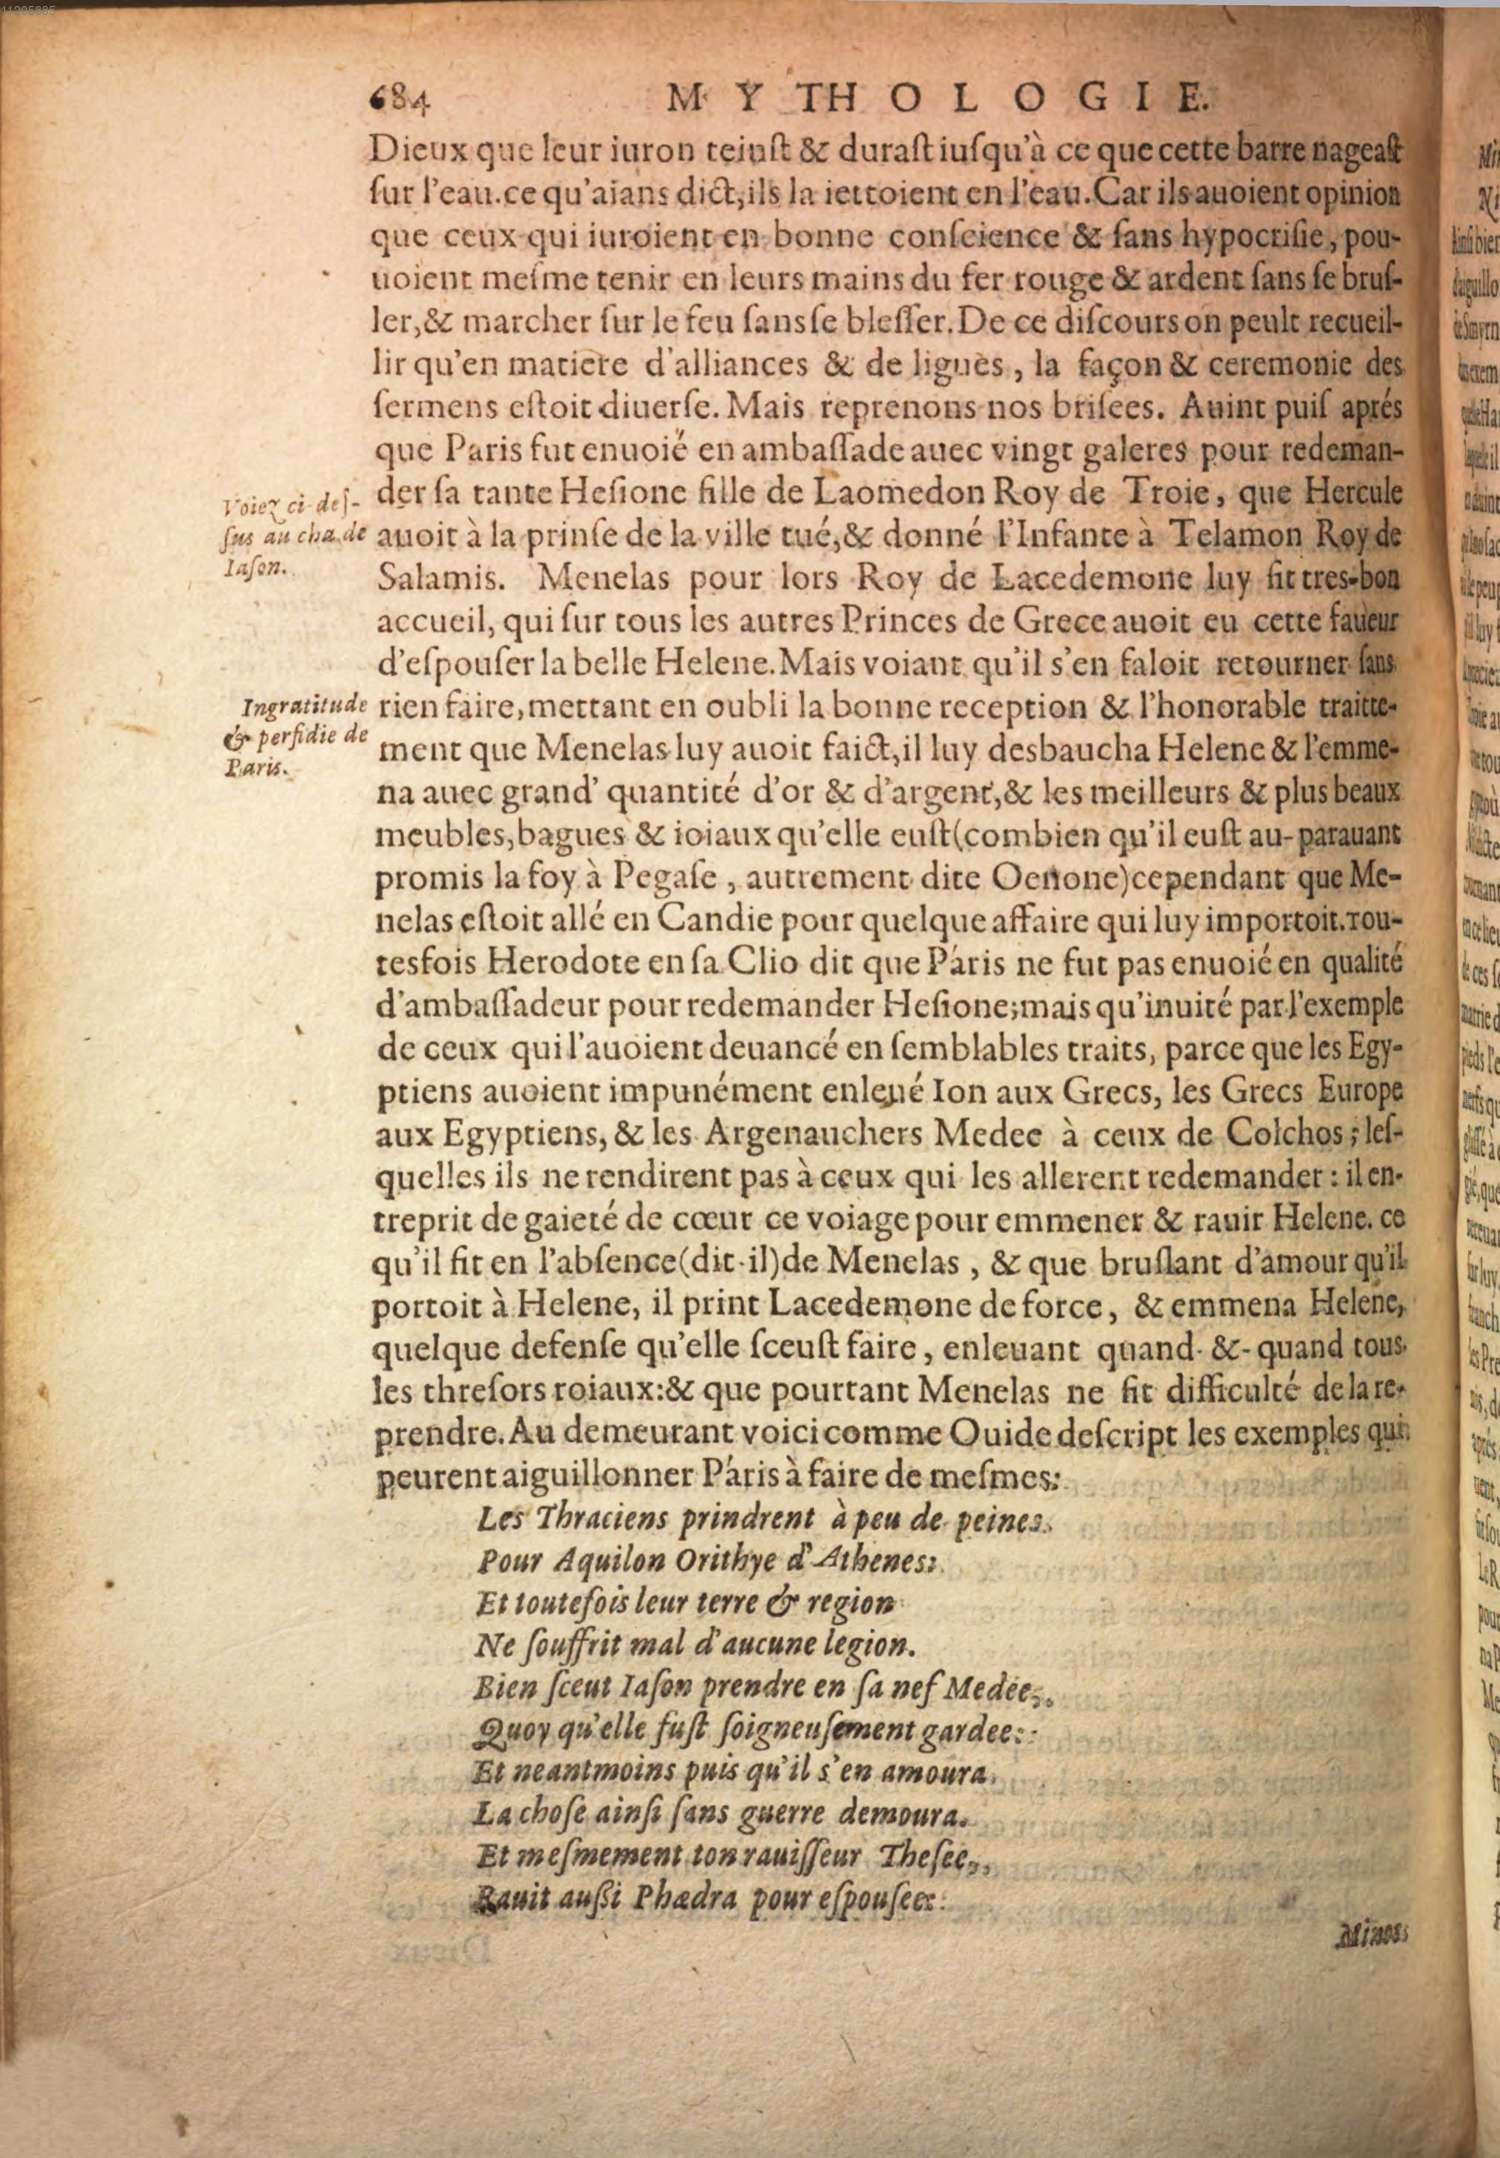 684 MYTHOLOGIE.
Dieux que leur iuron teinſt & duraſt iuſqu'à ce que cette barre nageaſt
ſur l'eau. ce qu'aians dict, ils la iettoient en l'eau. Car ils auoient opinion
que ceux qui iuroient en bonne conſcience & ſans hypocriſie, pou-
uoient meſme tenir en leurs mains du fer rouge & ardent ſans ſe bruſ-
ler, & marcher ſur le feu ſans ſe bleſſer. De ce diſcours on peult recueil-
lir qu'en matiere d'alliances & de ligues, la façon & ceremonie des
ſermens eſtoit diuerſe. Mais reprenons nos briſees. Auint puiſ aprés
que Paris fut enuoié en ambaſſade auec vingt galeres pour redeman-
der ſa tante Heſione fille de Laomedon Roy de Troie, que Hercule
Voiez ci deſ-
ſus au cha. de
Iaſon.
auoit à la prinſe de la ville tué, & donné l'Infante à Telamon Roy de
Salamis. Menelas pour lors Roy de Lacedemone luy fit tres-bon
accueil, qui ſur tous les autres Princes de Grece auoit eu cette faueur
d'eſpouſer la belle Helene. Mais voiant qu'il s'en faloit retourner ſans
Ingratitude
& perfidie de
Paris.
rien faire, mettant en oubli la bonne reception & l'honorable traitte-
ment que Menelas luy auoit faict, il luy desbaucha Helene & l'emme-
na auec grand' quantité d'or & d'argent, & les meilleurs & plus beaux
meubles, bagues & ioiaux qu'elle euſt (combien qu'il euſt au-parauant
promis la foy à Pegaſe, autrement dite Oenone) cependant que Me-
nelas eſtoit allé en Candie pour quelque affaire qui luy importoit. Tou-
tesfois Herodote en ſa Clio dit que Páris ne fut pas enuoié en qualité
d'ambaſſadeur pour redemander Heſione; mais qu'inuité par l'exemple
de ceux qui l'auoient deuancé en ſemblables traits, parce que les Egy-
ptiens auoient impunément enleué Ion aux Grecs, les Grecs Europe
aux Egyptiens, & les Argenauchers Medee à ceux de Colchos; leſ-
quelles ils ne rendirent pas à ceux qui les allerent redemander : il en-
treprit de gaieté de cœur ce voiage pour emmener & rauir Helene. ce
qu'il fit en l'abſence (dit-il) de Menelas, & que bruſlant d'amour qu'il
portoit à Helene, il print Lacedemone de force, & emmena Helene,
quelque defenſe qu'elle ſceuſt faire, enleuant quand-&-quand tous
les threſors roiaux: & que pourtant Menelas ne fit difficulté de la re-
prendre. Au demeurant voici comme Ouide deſcript les exemples qui
peurent aiguillonner Páris à faire de meſmes:
Les Thraciens prindrent à peu de peines
Pour Aquilon Orithye d'Athenes:
Et toutefois leur terre & region
Ne ſouffrit mal d'aucune legion.
Bien ſceut Iaſon prendre en ſa nef Medee,
Quoy qu'elle fuſt ſoigneuſement gardee:
Et neantmoins puis qu'il s'en amoura
La choſe ainſi ſans guerre demoura.
Et meſmement ton rauiſſeur Theſee,
Rauit außi Phædra pour eſpouſee:
Minos